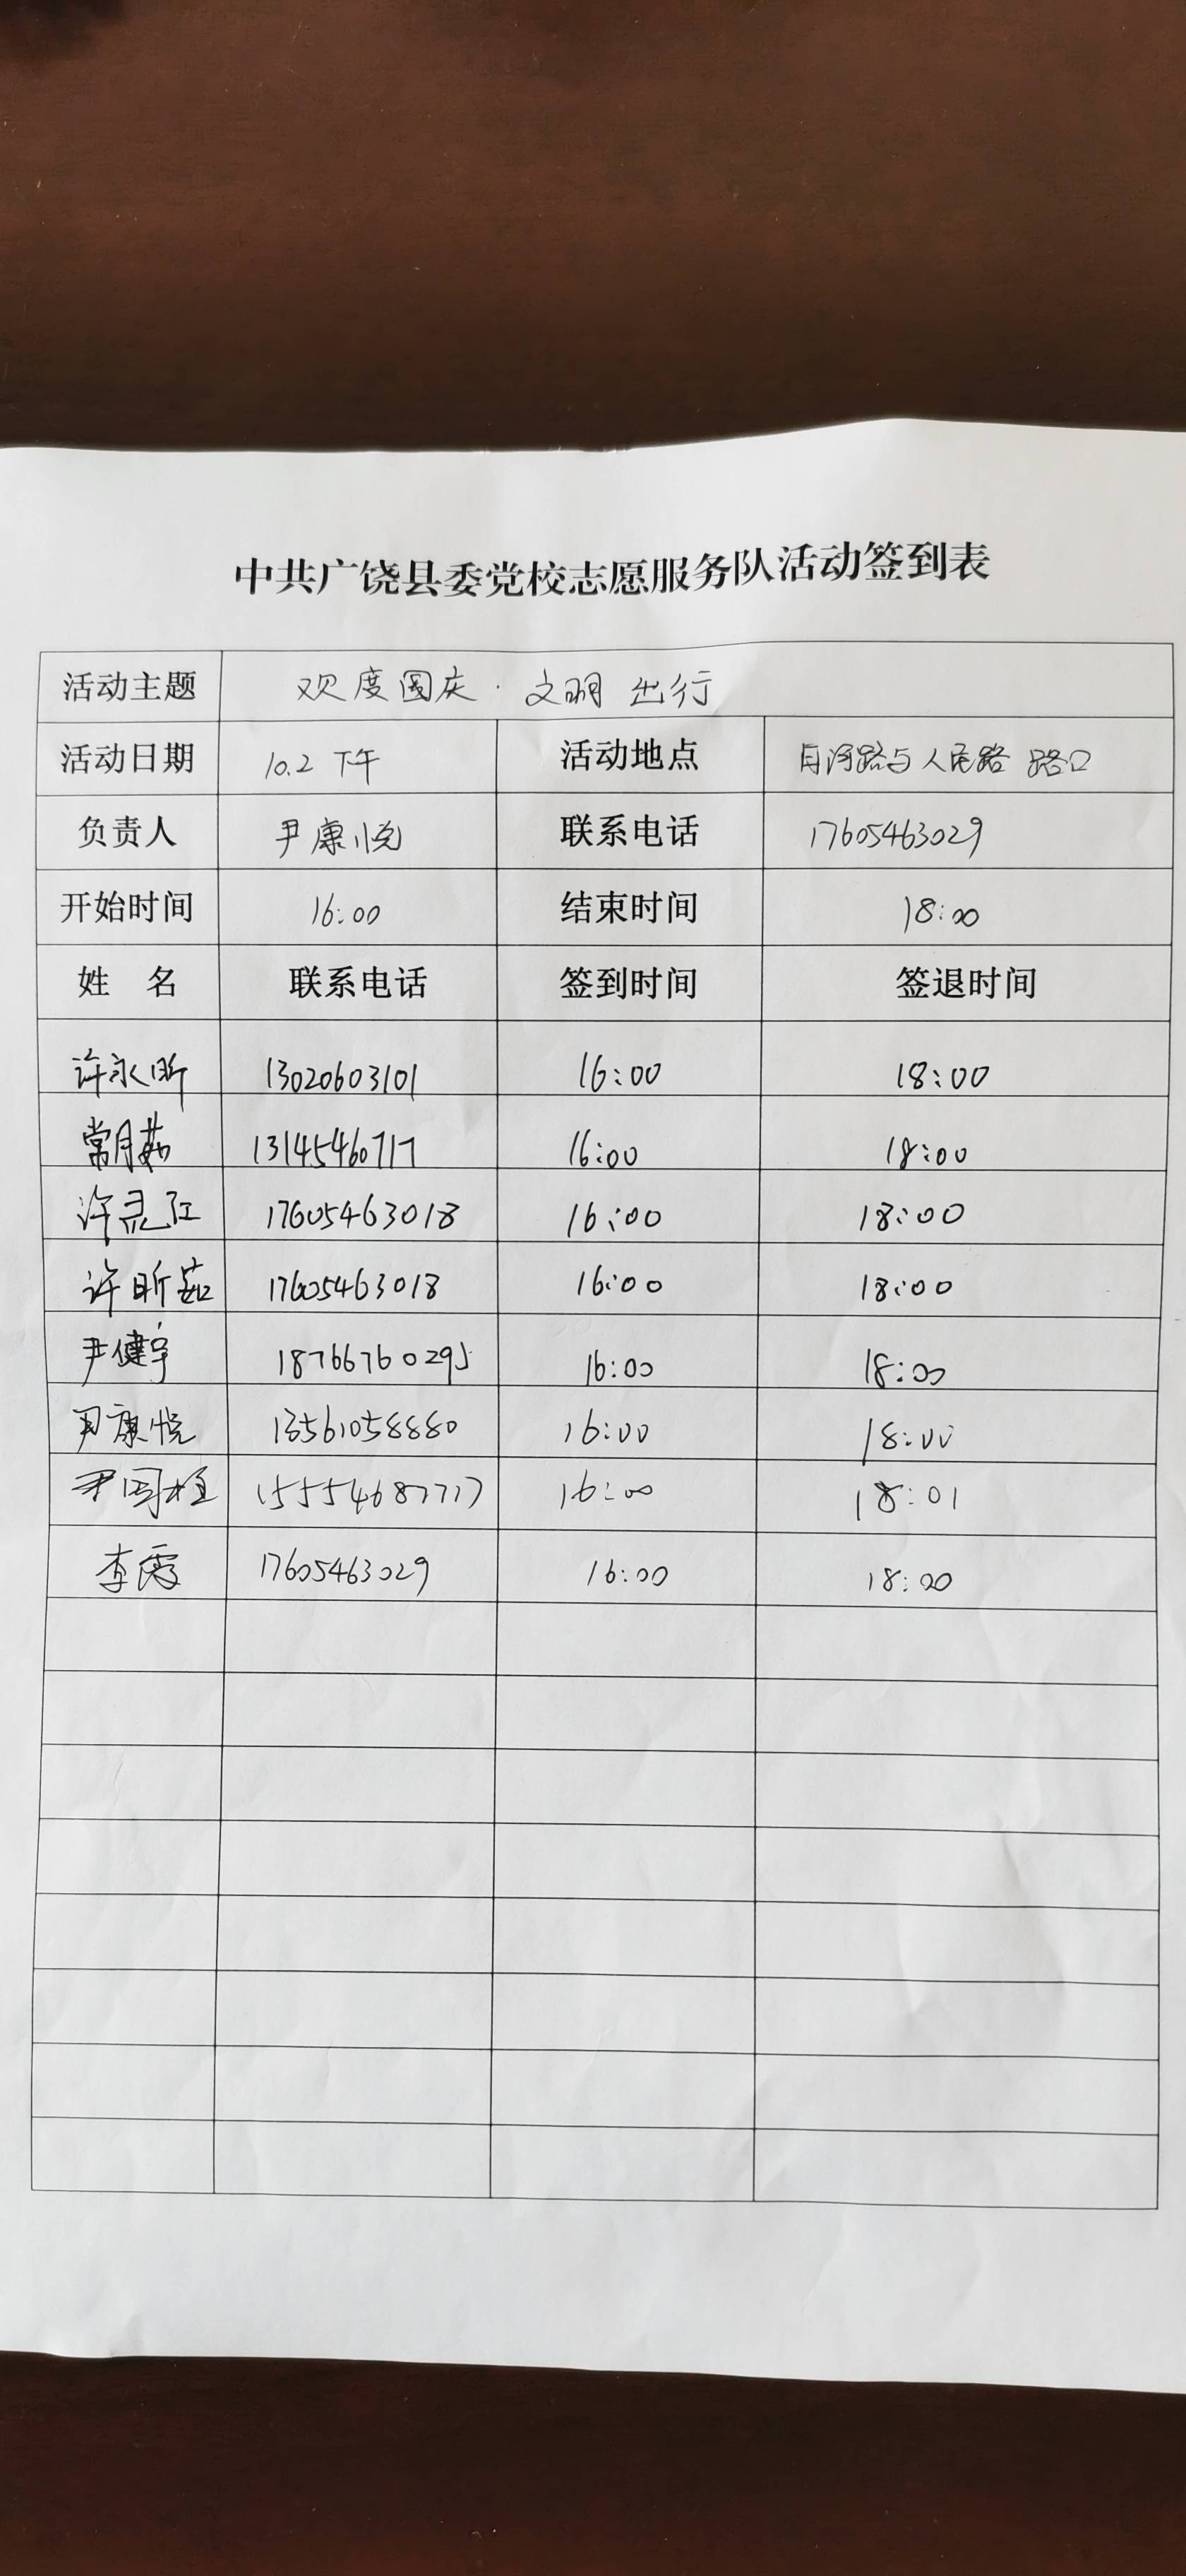 中共广饶县委党校志愿服务队活动签到表
活动主题 欢度国庆·文明出行
活动日期 10.2 下午 活动地点 月河路与人民路 路口
负责人 尹康悦 联系电话 17605463029
开始时间 16:00 结束时间 18:00
姓 名 联系电话 签到时间 签退时间
许永昕 13020603101 16:00 18:00
常月茹 13145460717 16:00 18:00
许灵江 17605463018 16:00 18:00
许昕茹 17605463018 16:00 18:00
尹健宇 18766760295 16:00 18:00
尹康悦 13561058880 16:00 18:00
尹国 15554687717 16:00 18:01
李霞 17605463029 16:00 18:00